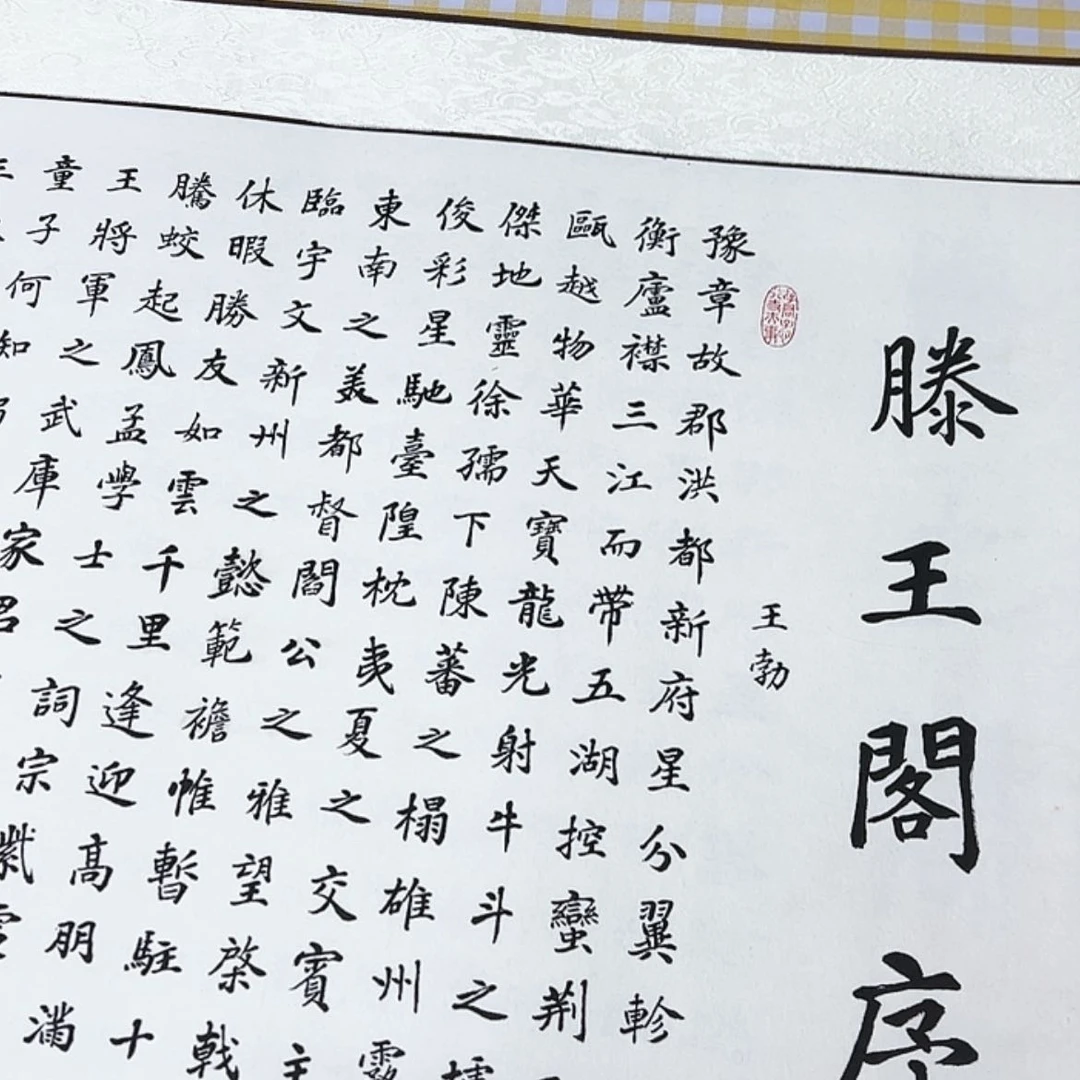 滕王閣序
王勃
豫章故郡洪都新府星分翼軫
衡廬襟三江而帶五湖控蠻荆
甌越物華天寶龍光射牛斗之
傑地靈徐孺下陳蕃之榻雄州霧
俊彩星馳臺隍枕夷夏之交賓主
東南之美都督閻公之雅望棨戟
臨宇文新州之懿範襜帷暫駐十
休暇勝友如雲千里逢迎高朋滿
騰蛟起鳳孟學士之詞宗紫
王將軍之武庫家
童子何知